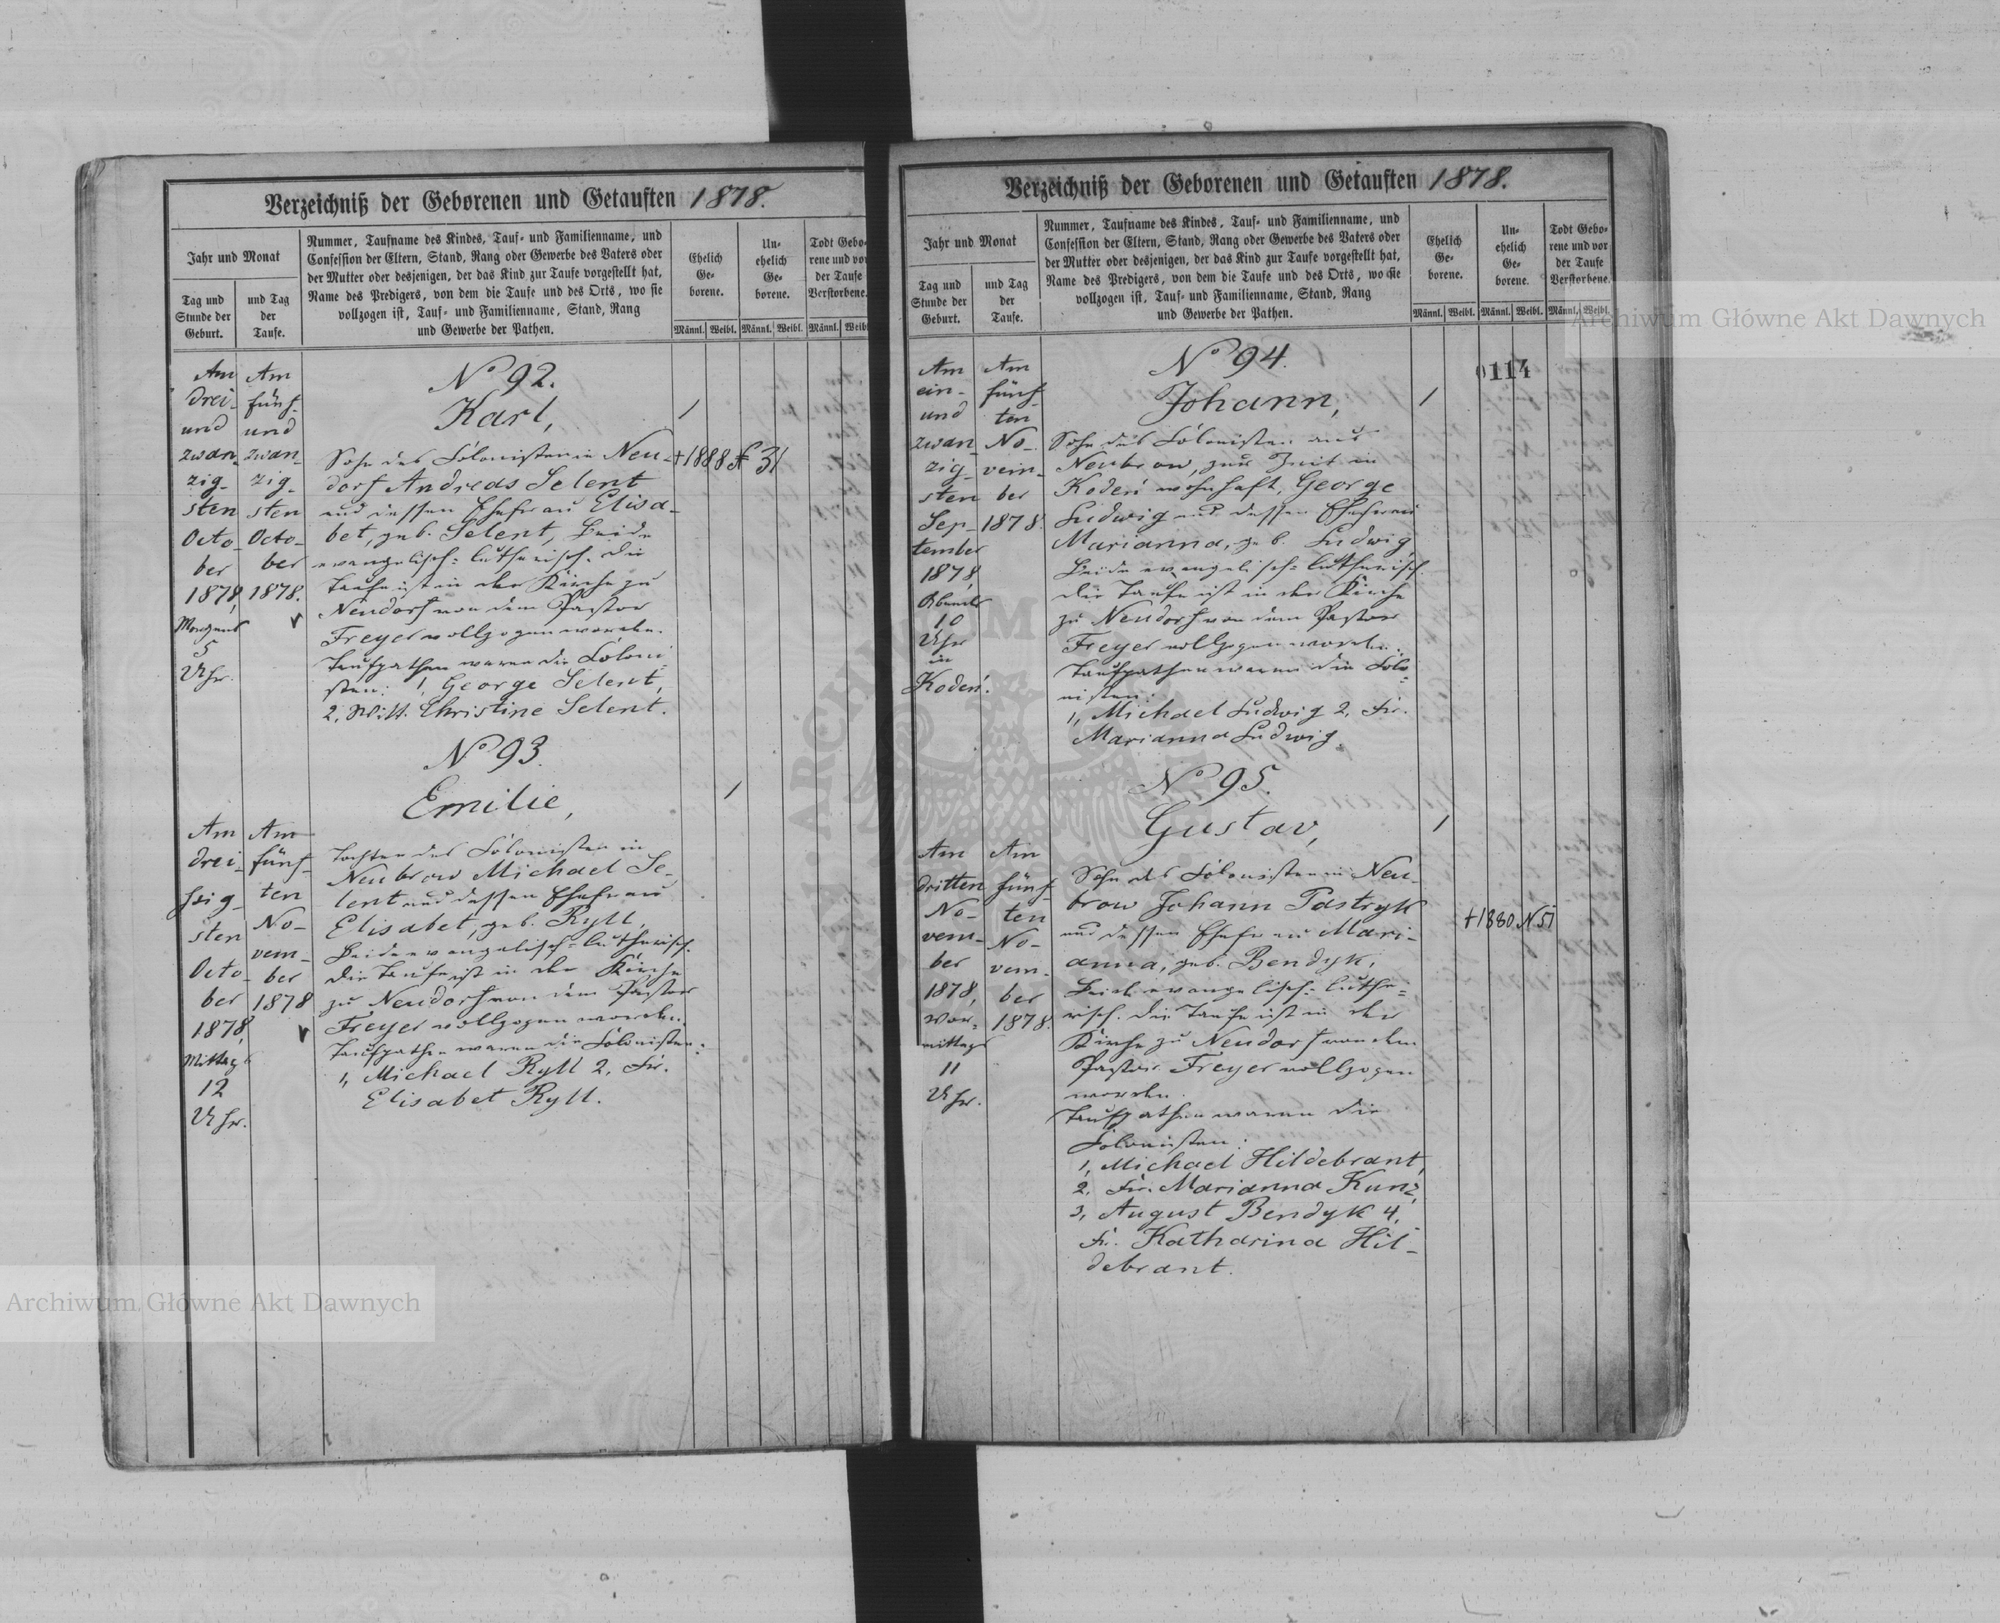 Verzeichniß der Geborenen und Getauften 1878.
Jahr und Monat
Tag und
Stunde der
Geburt.
und Tag
der
Taufe.
Nummer, Taufname des Kindes, Tauf- und Familienname, und
Confession der Eltern, Stand, Rang oder Gewerbe des Vaters oder
der Mutter oder desjenigen, der das Kind zur Taufe vorgestellt hat,
Name des Predigers, von dem die Taufe und des Orts, wo sie
vollzogen ist, Tauf- und Familienname, Stand, Rang
und Gewerbe der Pathen.
Ehelich
Ge-
borene.
Un-
ehelich
Ge-
borene.
Todt Gebo-
rene und vor
der Taufe
Verstorbene.
Männl. Weibl. Männl. Weibl. Männl. Weibl.
Am
drei-
und
zwan-
zig-
sten
Octo-
ber
1878,
Morgens
5
Uhr.
Am
fünf-
und
zwan-
zig-
sten
Octo-
ber
1878.
No 92.
Karl,
Sohn des Colonisten in Neu-
dorf Andreas Selent
und dessen Ehefrau Elisa-
bet, geb. Selent, Beide
evangelisch-lutherisch. Die
Taufe ist in der Kirche zu
Neudorf von dem Pastor
Freyer vollzogen worden.
Taufpathen waren die Coloni-
sten: 1, George Selent,
2, Witt. Christine Selent.
+1888 № 31
No 93.
Emilie,
Am
drei-
ßig-
sten
Octo-
ber
1878,
Mittags
12
Uhr.
Am
fünf-
ten
No-
vem-
ber
1878
Tochter des Colonisten in
Neubrow Michael Se-
lent und dessen Ehefrau
Elisabet, geb. Ryll,
Beide evangelisch-lutherisch.
Die Taufe ist in der Kirche
zu Neudorf von dem Pastor
Freyer vollzogen worden.
Taufpathen waren die Colonisten:
1, Michael Ryll 2, Fr.
Elisabet Ryll.
Verzeichniß der Geborenen und Getauften 1878.
Jahr und Monat
Tag und
Stunde der
Geburt.
und Tag
der
Taufe.
Nummer, Taufname des Kindes, Tauf- und Familienname, und
Confession der Eltern, Stand, Rang oder Gewerbe des Vaters oder
der Mutter oder desjenigen, der das Kind zur Taufe vorgestellt hat,
Name des Predigers, von dem die Taufe und des Orts, wo sie
vollzogen ist, Tauf- und Familienname, Stand, Rang
und Gewerbe der Pathen.
Ehelich
Ge-
borene.
Un-
ehelich
Ge-
borene.
Todt Gebo-
rene und vor
der Taufe
Verstorbene.
Männl. Weibl. Männl. Weibl. Männl. Weibl.
0114
Am
ein-
und
zwan-
zig-
sten
Sep-
tember
1878,
Abends
10
Uhr
in
Kodeń.
Am
fünf-
ten
No-
vem-
ber
1878.
No 94.
Johann,
Sohn des Colonisten aus
Neubrow, zur Zeit in
Kodeń wohnhaft, George
Ludwig und dessen Ehefrau
Marianna, geb. Ludwig,
Beide evangelisch-lutherisch.
Die Taufe ist in der Kirche
zu Neudorf von dem Pastor
Freyer vollzogen worden.
Taufpathen waren die Colo-
nisten:
1, Michael Ludwig 2, Fr.
Marianna Ludwig.
No 95.
Gustav,
Am
dritten
No-
vem-
ber
1878,
Vor-
mittags
11
Uhr.
Am
fünf-
ten
No-
vem-
ber
1878.
Sohn des Colonisten in Neu-
brow Johann Pastryk
und dessen Ehefrau Mari-
anna, geb. Bendyk,
Beide evangelisch-luthe-
risch. Die Taufe ist in der
Kirche zu Neudorf von dem
Pastor Freyer vollzogen
worden.
Taufpathen waren die
Colonisten:
1, Michael Hildebrant,
2, Fr. Marianna Kunz,
3, August Bendyk 4,
Fr. Katharina Hil-
debrant.
+1880. N 51
Archiwum Główne Akt Dawnych
Archiwum Główne Akt Dawnych